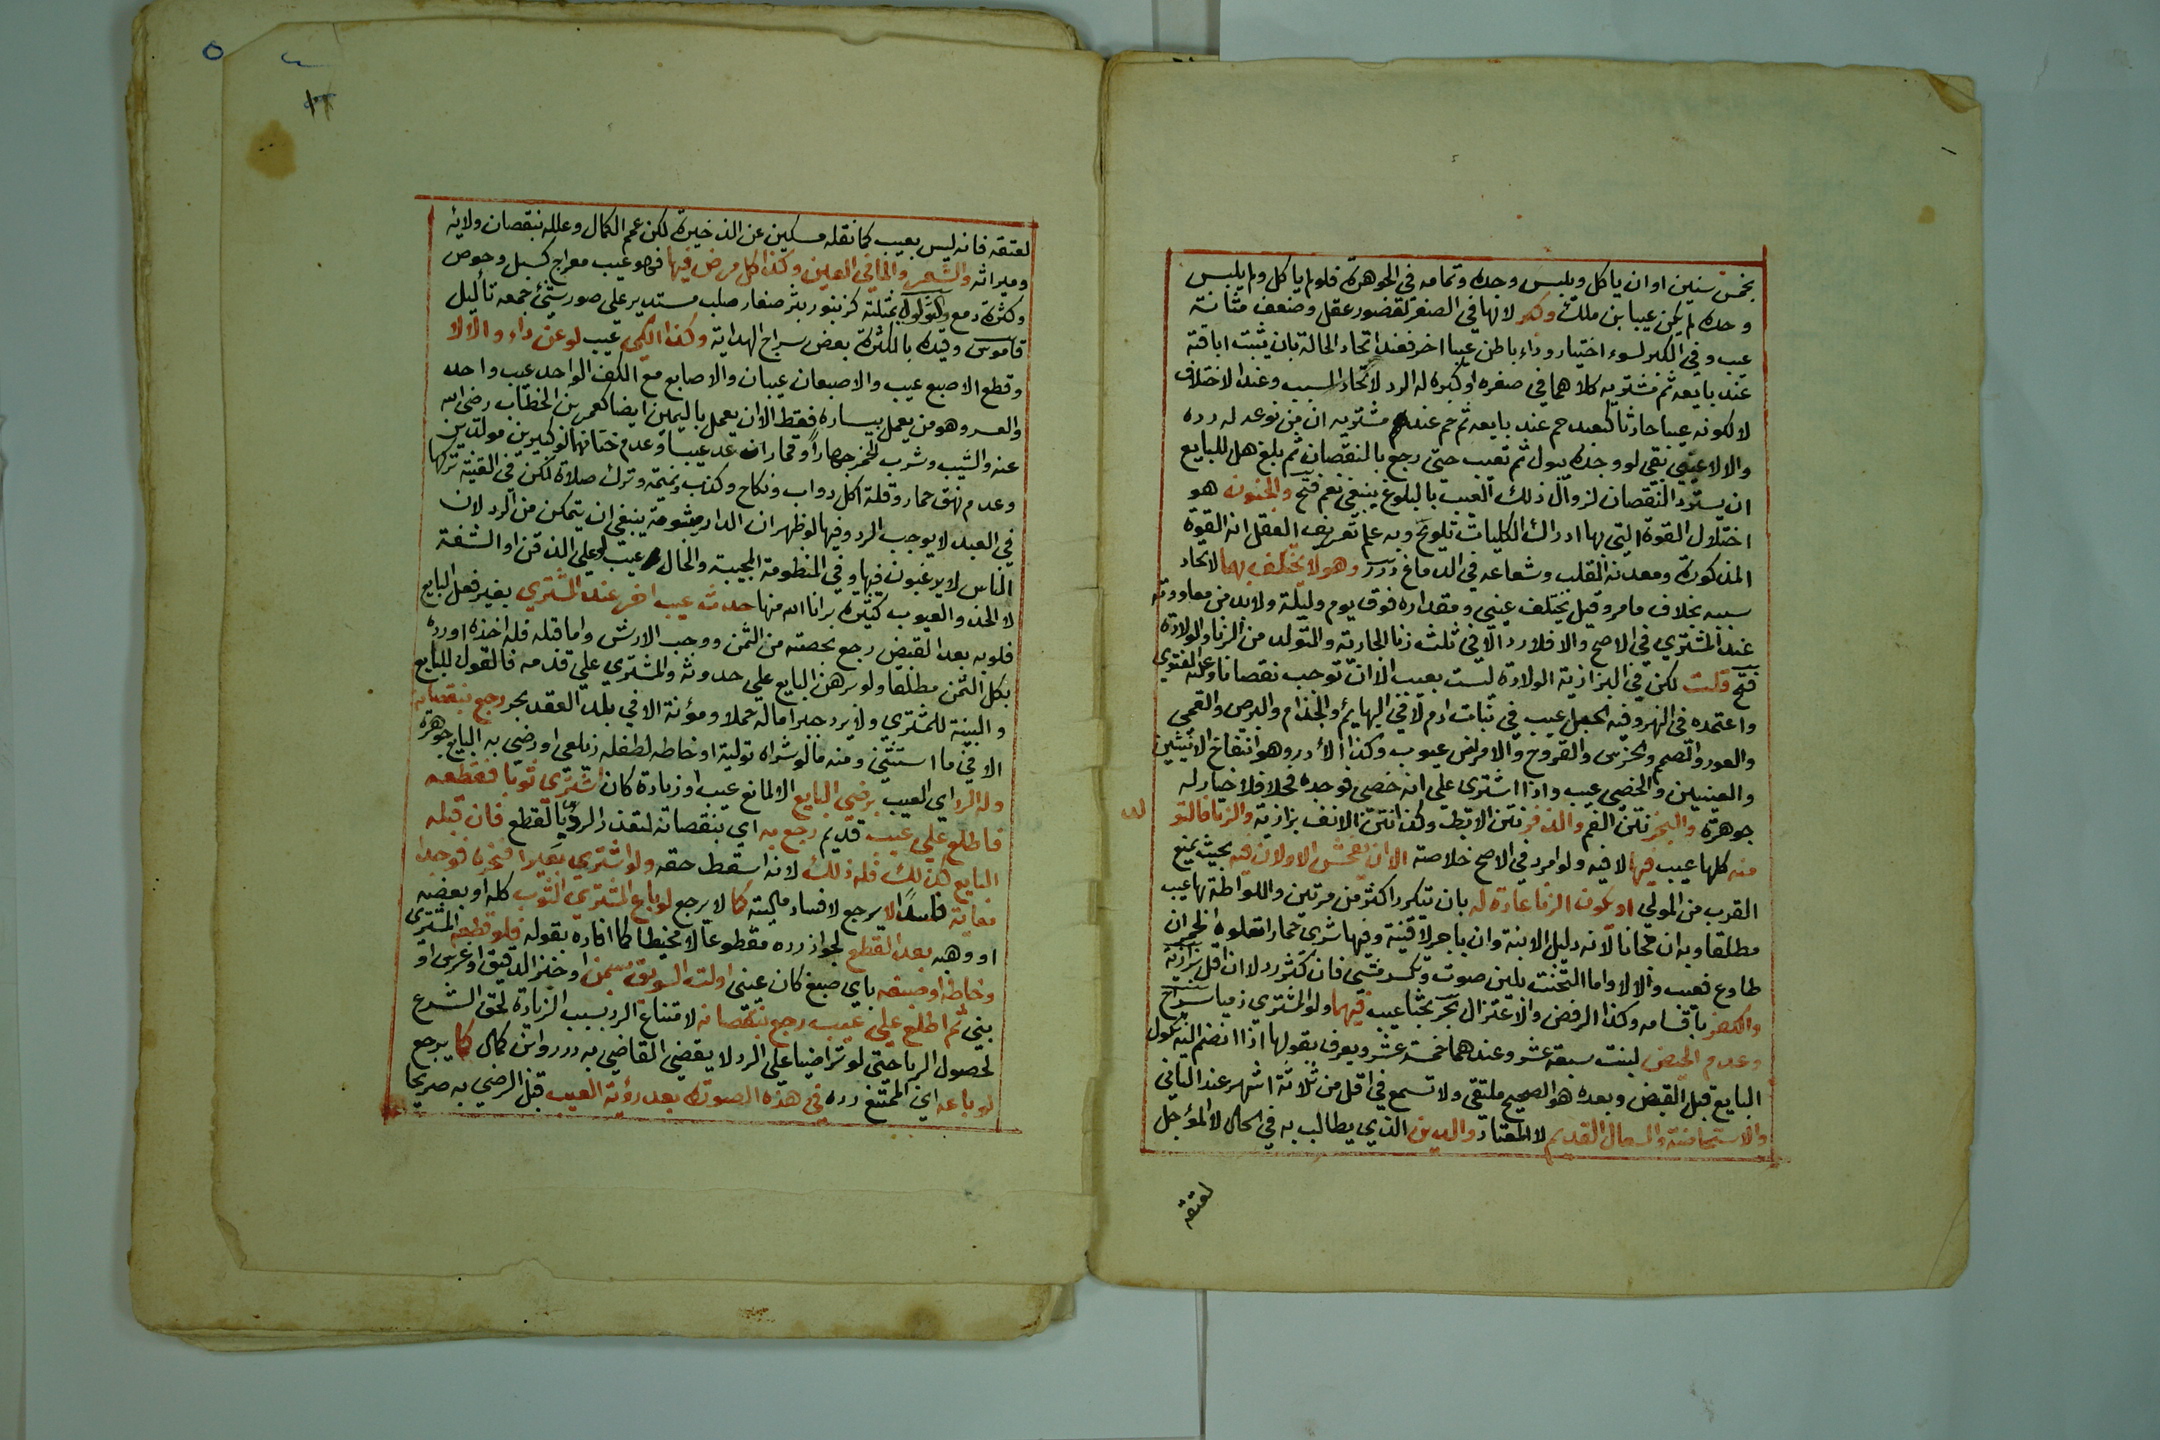 بخمس سنين او ان ياكل ويلبس وحده وتمامه في الجوهرة فلو لم ياكل ولم يلبس
وحده لم يكن عيبا ابن ملك وكبر لانها في الصغر لقصور عقل وضعف مثانة
عيب وفي الكبر لسوء اختيار وداء باطن عيبا اخر فعند اتحاد الحالة بان يثبت اباقه
عند بايعه ثم مشتريه كلاهما في صغره او كبره له الرد لاتحاد السبب وعند الاختلاف
لا لكونه عيبا حادثا كعبد حم عند بايعه ثم حم عند مشتريه ان من نوعه له رده
والا لا عيني بقي لو وجده يبول ثم تعيب حتى رجع بالنقصان ثم بلغ هل للبايع
ان يسترد النقصان لزوال ذلك العيب بالبلوغ ينبغي نعم فتح والجنون هو
اختلال القوة التي بها ادراك الكليات تلويح وبه علم تعريف العقل انه القوة
المذكورة ومعدنه القلب وشعاعه في الدماغ درر وهو لا يختلف بهما لاتحاد
سببه بخلاف ما مر وقيل يختلف عيني ومقداره فوق يوم وليلة ولابد من معاودته
عند المشتري في الاصح والا فلا رد الا في ثلث زنا الجارية والتولد من الزنا والولادة
فتح قلت لكن في البزازية الولادة ليست بعيب الا ان توجب نقصانا وعليه الفتوى
واعتمده في النهر وفيه الحبل عيب في بنات ادم لا في البهايم والجذام والبرص والعمي
والعور والصمم والخرس والقروح والامراض عيوب وكذا الادر وهو انتفاخ الانثيين
والعنين والخصي عيب واذا اشترى على انه خصي فوجده فحلا فلا خيار له
جوهرة والبخر نتن الفم والذفر نتن الابط وكذا نتن الانف بزازية والزنا والتو لد
منه كلها عيب فيها لا فيه ولو امرد في الاصح خلاصه الا ان يفحش الاولان فيه بحيث يمنع
القرب من المولى او يكون الزنا عادة له بان يتكرر اكثر من مرتين واللواطة بها عيب
مطلقا وبه ان مجانا لانه دليل الابنة وان باجر لا قنية وفيها شرى حمارا تعلوه الحمر ان
طاوع فعيب والا لا واما التخنث بلين صوت وتكسر مشي فان كثر رد لا ان قل بزازية
والكفر باقسامه وكذا الرفض والاعتزال بحر بحثا عيب فيهما ولو المشتري ذميا سراج
وعدم الحيض لبنت سبعة عشر وعندهما خمسة عشر ويعرف بقولها اذا انضم اليه نكول
البايع قبل القبض وبعده هو الصحيح ملتقى ولا تسمع في اقل من ثلاثة اشهر عند الثاني
والاستحاضة والسعال القديم لا المعتاد والدين الذي يطالب به في الحال لا المؤجل
لعتقه
لعتقه فانه ليس بعيب كما نقله مسكين عن الذخيرة لكن عمم الكمال وعلله بنقصان ولايه
وميراثه والشعر والما في العين وكذا كل مرض فيها فهو عيب معراج كسبل وحوص
وكثرة دمع والثولول بمثلثة كزنبور بثر صغار صلب مستدير على صور شتى جمعه ثآليل
قاموس وقيده بالكثرة بعض سراح الهداية وكذا الكي عيب لو عن داء والا لا
وقطع الاصبع عيب والاصبعان عيبان والاصابع مع الكف الواحد عيب واحد
والعسر وهو من يعمل بيساره فقط الا ان يعمل باليمين ايضا كعمر بن الخطاب رضي الله
عنه والشيب وشرب الخمر جهارا وقمار ان عد عيبا وعدم ختانهما لو كبيرين مولدين
وعدم نهق حمار وقلة اكل دواب ونكاح وكذب ونميمة وترك صلاة لكن في القنية تركها
في العبد لا يوجب الرد وفيها لو ظهر ان الدار مشومة ينبغي ان يتمكن من الرد لان
الناس لا يرغبون فيها وفي المنظومة المحبية والخال عيب لو على الذقن او الشفة
لا الخد والعيوب كثيرة برانا الله منها حدث عيب اخر عند المشتري بغير فعل البايع
فلو به بعد القبض رجع بحصته من الثمن ووجب الارش واما قبله فله اخذه اورده
بكل الثمن مطلقا ولو برهن البايع على حدوثه والمشتري على قدمه فالقول للبايع
والبينة للمشتري ولا يرد جبرا ماله حمل ومؤنة الا في بلد العقد بحر رجع بنقصانه
الا في ما استثني ومنه ما لو شراه تولية او خاطه لطفله زيلعي او رضي به البايع جوهرة
وله الرد اي العيب برضى البايع الا لمانع عيب او زيادة كان اشترى ثوبا فقطعه
فاطلع على عيب قديم رجع به اي بنقصانه لتعذر الرد بالقطع فان قبله
البايع كذلك فله ذلك لانه اسقط حقه ولو اشترى بعيرا فنحره فوجد
امعايه فاسدا لا يرجع لافساد ماليته كما لا يرجع لو باع المشتري الثوب كله او بعضه
او وهبه بعد القطع لجواز رده مقطوعا لا مخيطا كما افاده بقوله فلو قطعه المشتري
وخاطه او صبغه باي صبغ كان عيني او لت السويق بسمن او خبز الدقيق او غرس او
بنى ثم اطلع على عيب رجع بنقصانه لامتناع الرد بسبب الزيادة لحق الشرع
لحصول الربا حتى لو تراضيا على الرد لا يقضي القاضي به درر وابن كمال كما يرجع
لو باعه اي الممتنع رده في هذه الصورة بعد رؤية العيب قبل الرضي به صريحا